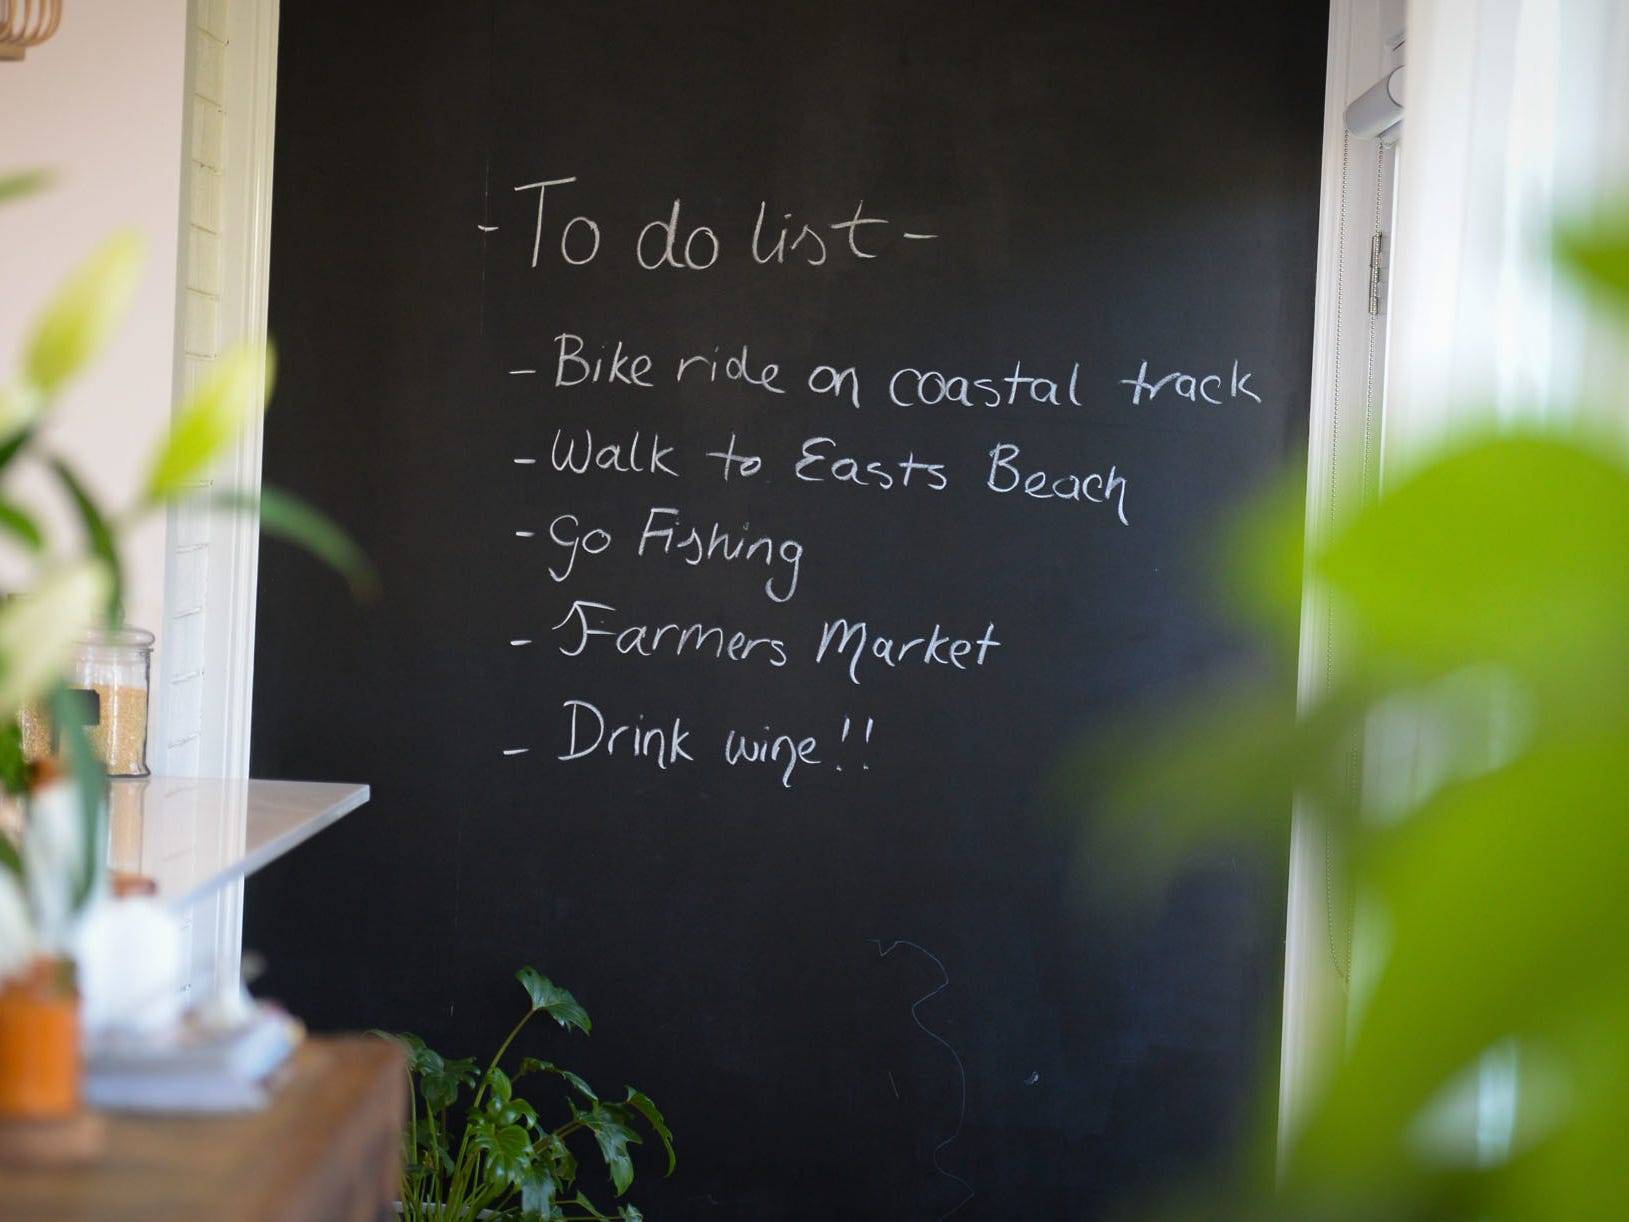 -To do list-
- Bike ride on coastal track
- Walk to Easts Beach
- Go Fishing
- Farmers Market
- Drink wine!!